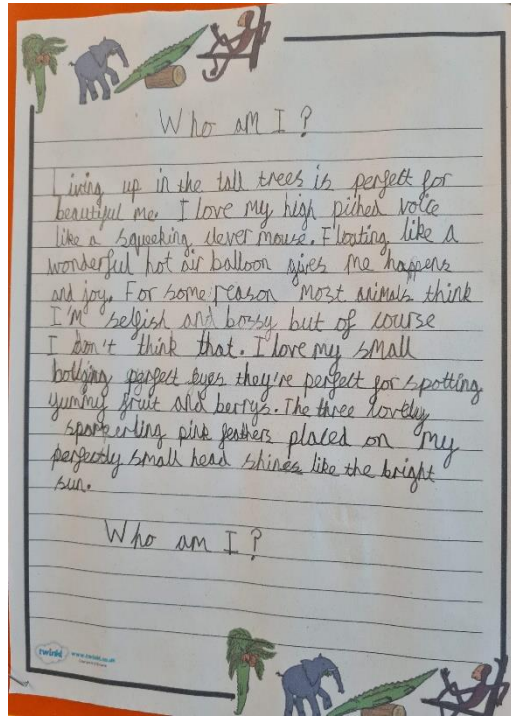 Who am I?
Living up in the tall trees is perfect for
beautiful me. I love my high piched voice
like a squeeking clever mouse. Floating like a
wonderful hot air balloon gives me happens
and joy. For some reason most animals think
I'm selfish and bossy but of course
I don't think that. I love my small
bollging perfect eyes they're perfect for spotting
yummy fruit and berrys. The three lovely
sparkerling pink feathers placed on my
perfectly small head shines like the bright
sun.
Who am I?
twinkl www.twinkl.co.uk